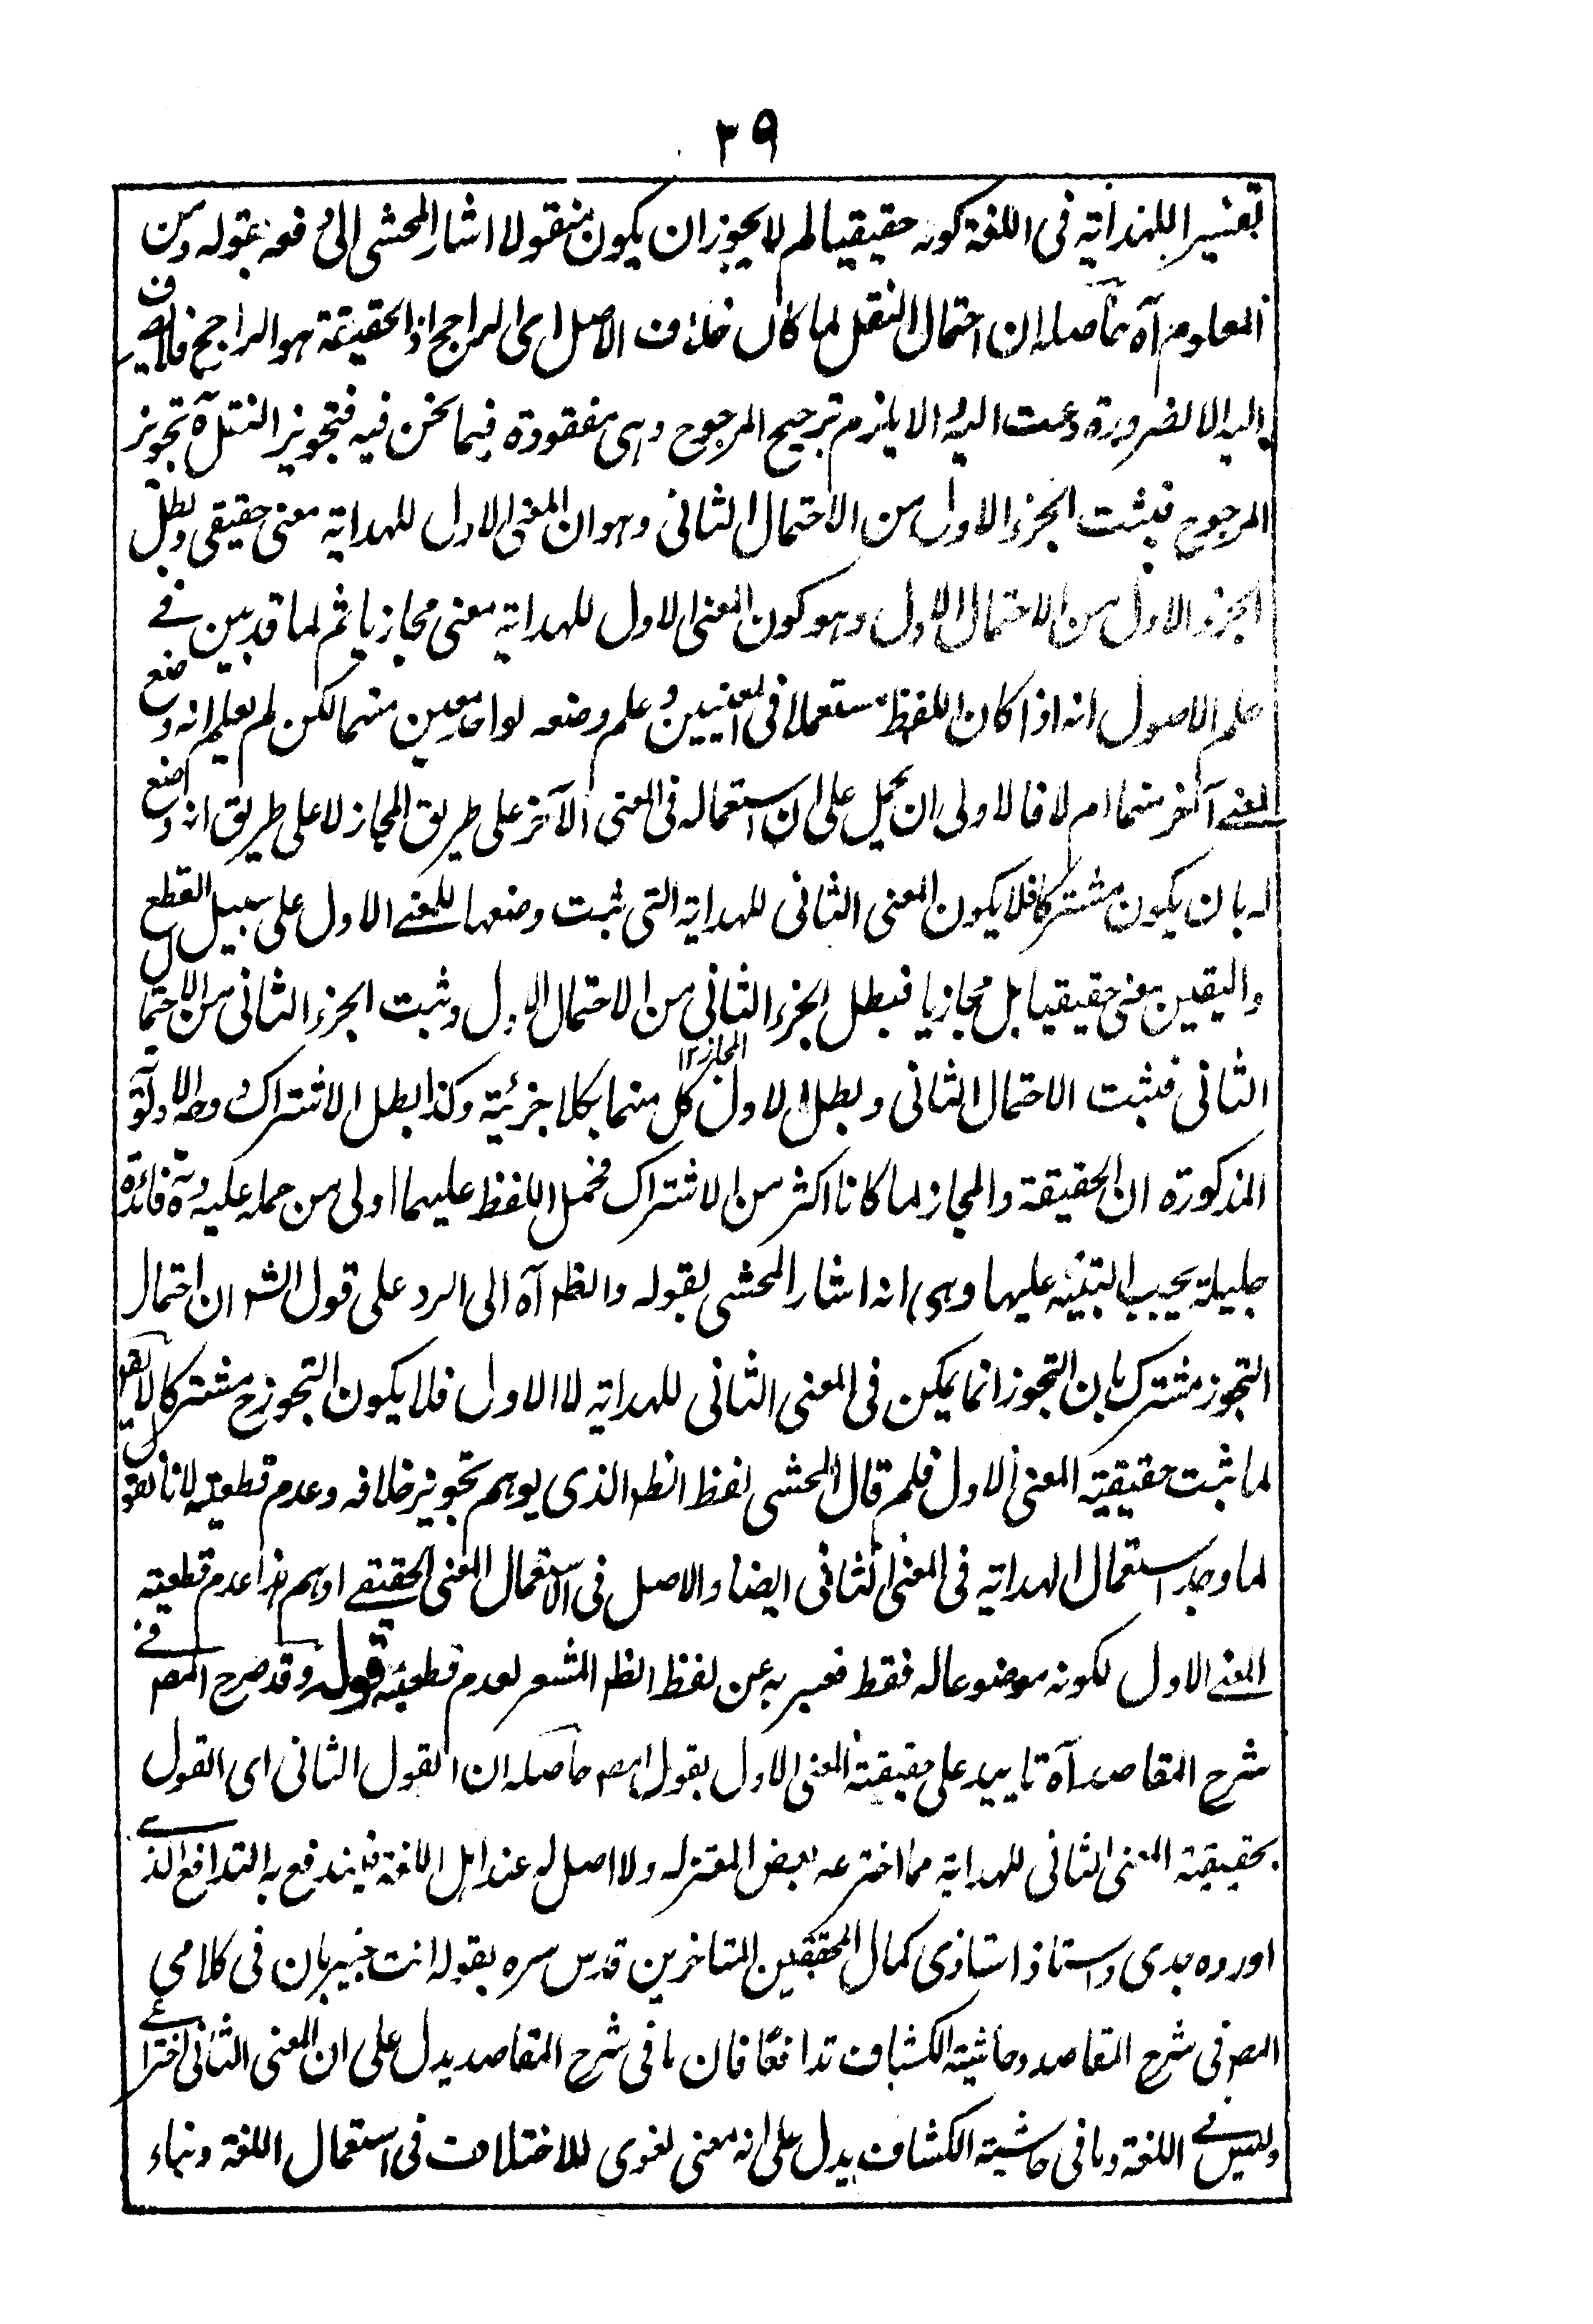 ٣٩
تفسير اللهداية فى اللغة كونه حقيقيا لم لا يجوز ان يكون منقولا اشار المحشى الى دفعه بقوله ومن
المعلوم آه حاصله ان احتمال النقل لما كان خلاف الاصل اى الراجح اذ الحقيقة هو الراجح فلا يصرف
اليه الا لضرورة دعت اليه والا يلزم ترجيح المرجوح وهى مفقودة فيما نحن فيه فتجويز النقل آه تجويز
المرجوح فثبت الجزء الاول من الاحتمال الثانى وهو ان المعنى الاول للهداية معنى حقيقى وبطل
الجزء الاول من الاحتمال الاول وهو كون المعنى الاول للهداية معنى مجازيا ثم لما قد بين فى
علم الاصول انه اذا كان اللفظ مستعملا فى المعنيين وعلم وضعه لواحد معين منهما لكن لم يعلم انه وضع
لمعنى آخر منهما ام لا فالاولى ان يحمل على ان استعماله فى المعنى الآخر على طريق المجاز لا على طريق انه وضع
له بان يكون مشتركا فلا يكون المعنى الثانى للهداية التى ثبت وضعها للمعنى الاول على سبيل القطع
واليقين معنى حقيقيا بل مجازيا فبطل الجزء الثانى من الاحتمال الاول وثبت الجزء الثانى من الاحتمال
الثانى فثبت الاحتمال الثانى وبطل الاول كل منهما بكلا جزئية وكذا بطل الاشتراك وجه الاولوية
المجاز ١٢
المذكورة ان الحقيقة والمجاز لما كانا اكثر من الاشتراك فحمل اللفظ عليهما اولى من حمله عليه فائدة
جليلة يجب التنبيه عليها وهى انه اشار المحشى بقوله والظ آه الى الرد على قول الش ان احتمال
التجوز مشترك بان التجوز انما يمكن فى المعنى الثانى للهداية لا الاول فلا يكون التجوز ح مشتركا لا يقال
لما ثبت حقيقية المعنى الاول فلم قال المحشى لفظ الظ الذى يوهم تجويز خلافه وعدم قطعيته لانا نقول
لما وجد استعمال الهداية فى المعنى الثانى ايضا والاصل فى الاستعمال المعنى الحقيقى اوهم هذا عدم قطعيته
المعنى الاول لكونه موضوعا له فقط فعبر به عن لفظ الظ المشعر لعدم قطعيته قوله وقد صرح المص فى
شرح المقاصد آه تاييد على حقيقية المعنى الاول بقول المص حاصله ان القول الثانى اى القول
بحقيقية المعنى الثانى للهداية مما اخترعه بعض المعتزله ولا اصل له عند اهل اللغة فيندفع به التدافع الذى
اورده جدى واستاذ استاذى كمال المحققين المتاخرين قدس سره بقوله انت خبير بان فى كلامى
المص فى شرح المقاصد وحاشية الكشاف تدافعا فان ما فى شرح المقاصد يدل على ان المعنى الثانى اختراعى
وليس فى اللغة وما فى حاشية الكشاف يدل على انه معنى لغوى للاختلاف فى استعمال اللغة وبناء